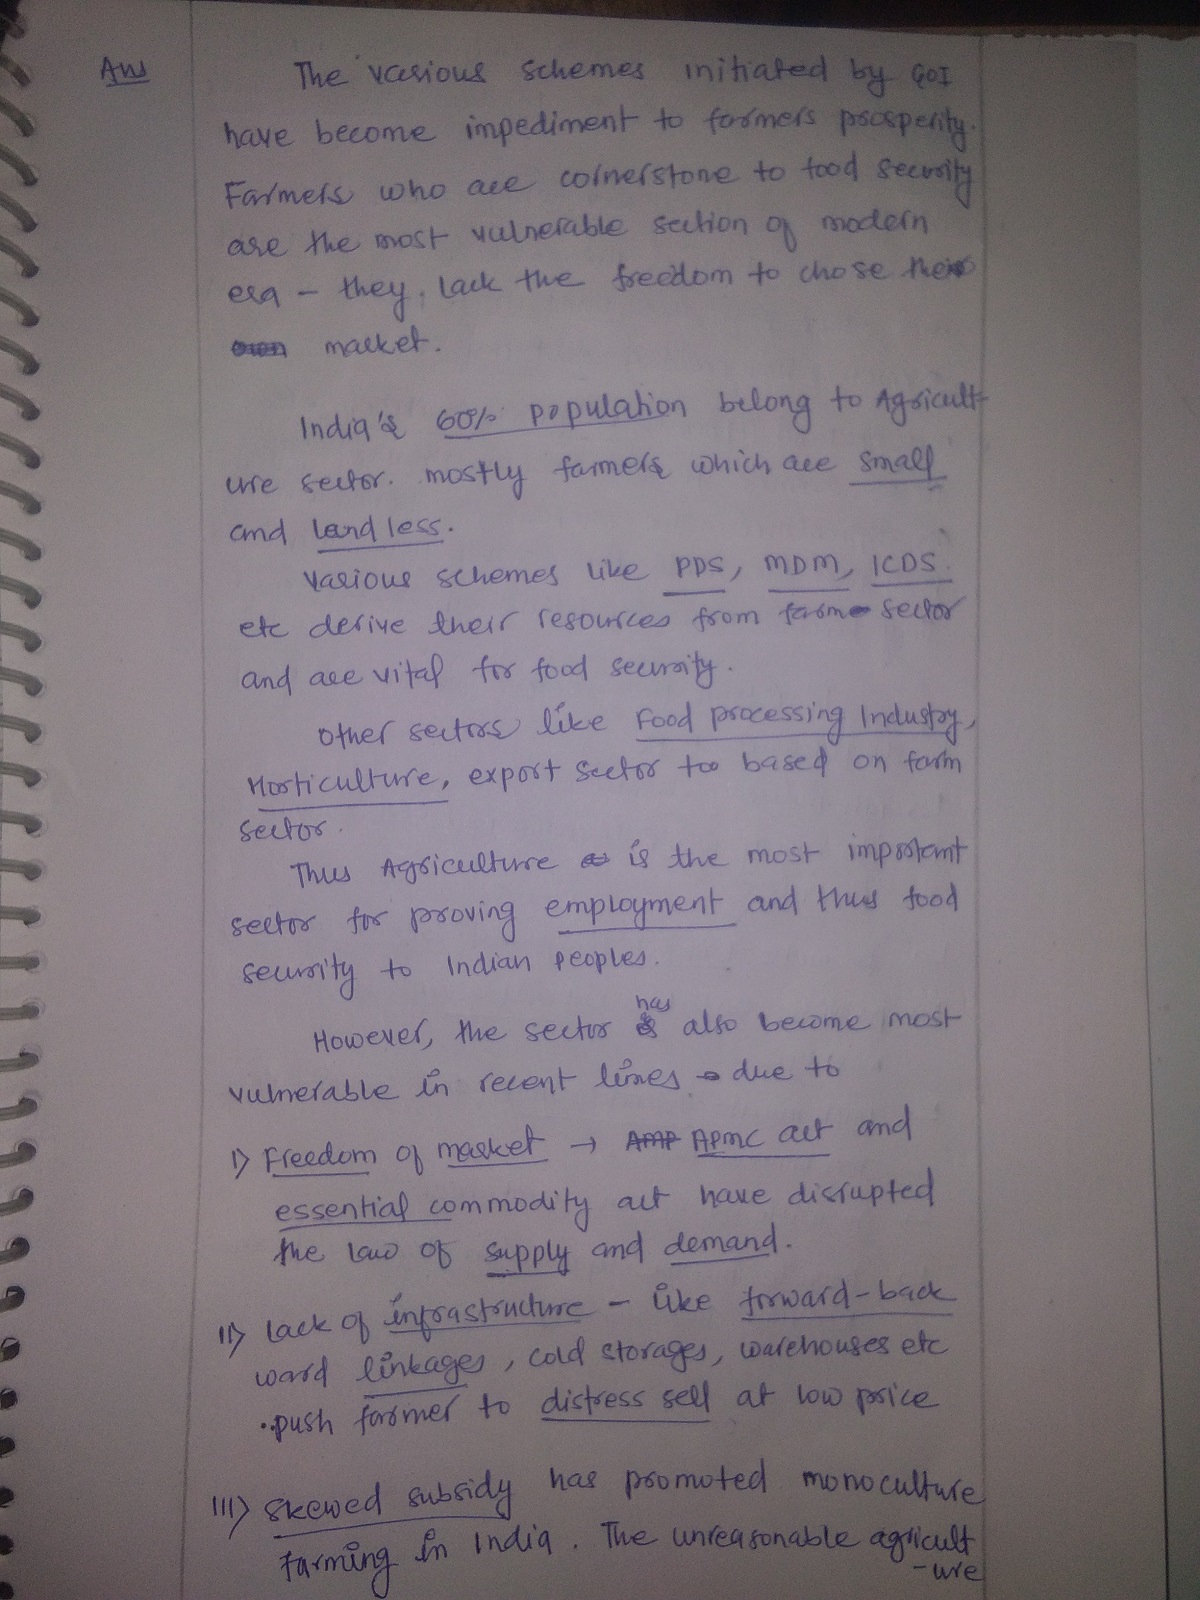 Ans The various schemes initiated by GOI
have become impediment to farmers prosperity.
Farmers who are cornerstone to food security
are the most vulnerable section of modern
era - they lack the freedom to chose their
market.
India's 60% population belong to Agricult-
ure sector. mostly farmers which are small
and landless.
Various schemes like PDS, MDM, ICDS.
etc derive their resources from farm sector
and are vital for food security.
Other sectors like Food processing Industry,
Horticulture, export sector too based on farm
sector.
Thus Agriculture is the most important
sector for proving employment and thus food
security to Indian peoples.
However, the sector has also become most
vulnerable in recent times due to
I) Freedom of market → APMC act and
essential commodity act have disrupted
the law of supply and demand.
II) lack of infrastructure - like forward-back
ward linkages, cold storages, warehouses etc
push farmer to distress sell at low price
III) Skewed subsidy has promoted monoculture
farming in India. The unreasonable agricult
-ure